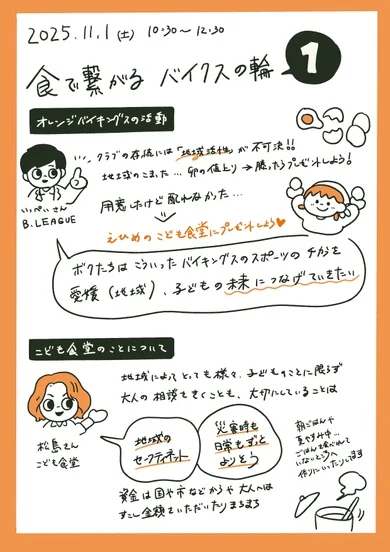 2025.11.1(土) 10:30〜12:30
食で繋がる バイクスの輪
1
オレンジバイキングスの活動
クラブの存続には「地域活性」が不可決!!
地域のこまった… 卵の値上り→勝ったらプレゼントしよう!
用意したけど配れなかった…
えひめのこども食堂にプレゼントしよう♥
いっぺいさん
B.LEAGUE
ボクたちは こういった バイキングスのスポーツの チカラを
愛媛(地域)、子どもの 未来につなげていきたい
こども食堂のことについて
地域によって とっても様々、子どものことに限らず
大人の相談もきくことも、大切にしていることは
松島さん
こども食堂
地域の
セーフティネット
災害時も
日常もずっと
よりそう
朝ごはんや
夏やすみ中…
ごはんを食べれて
いないところへ
作りにいったりします
資金は国や市などからや 大人へは
すこし金額をいただいたりまちまち